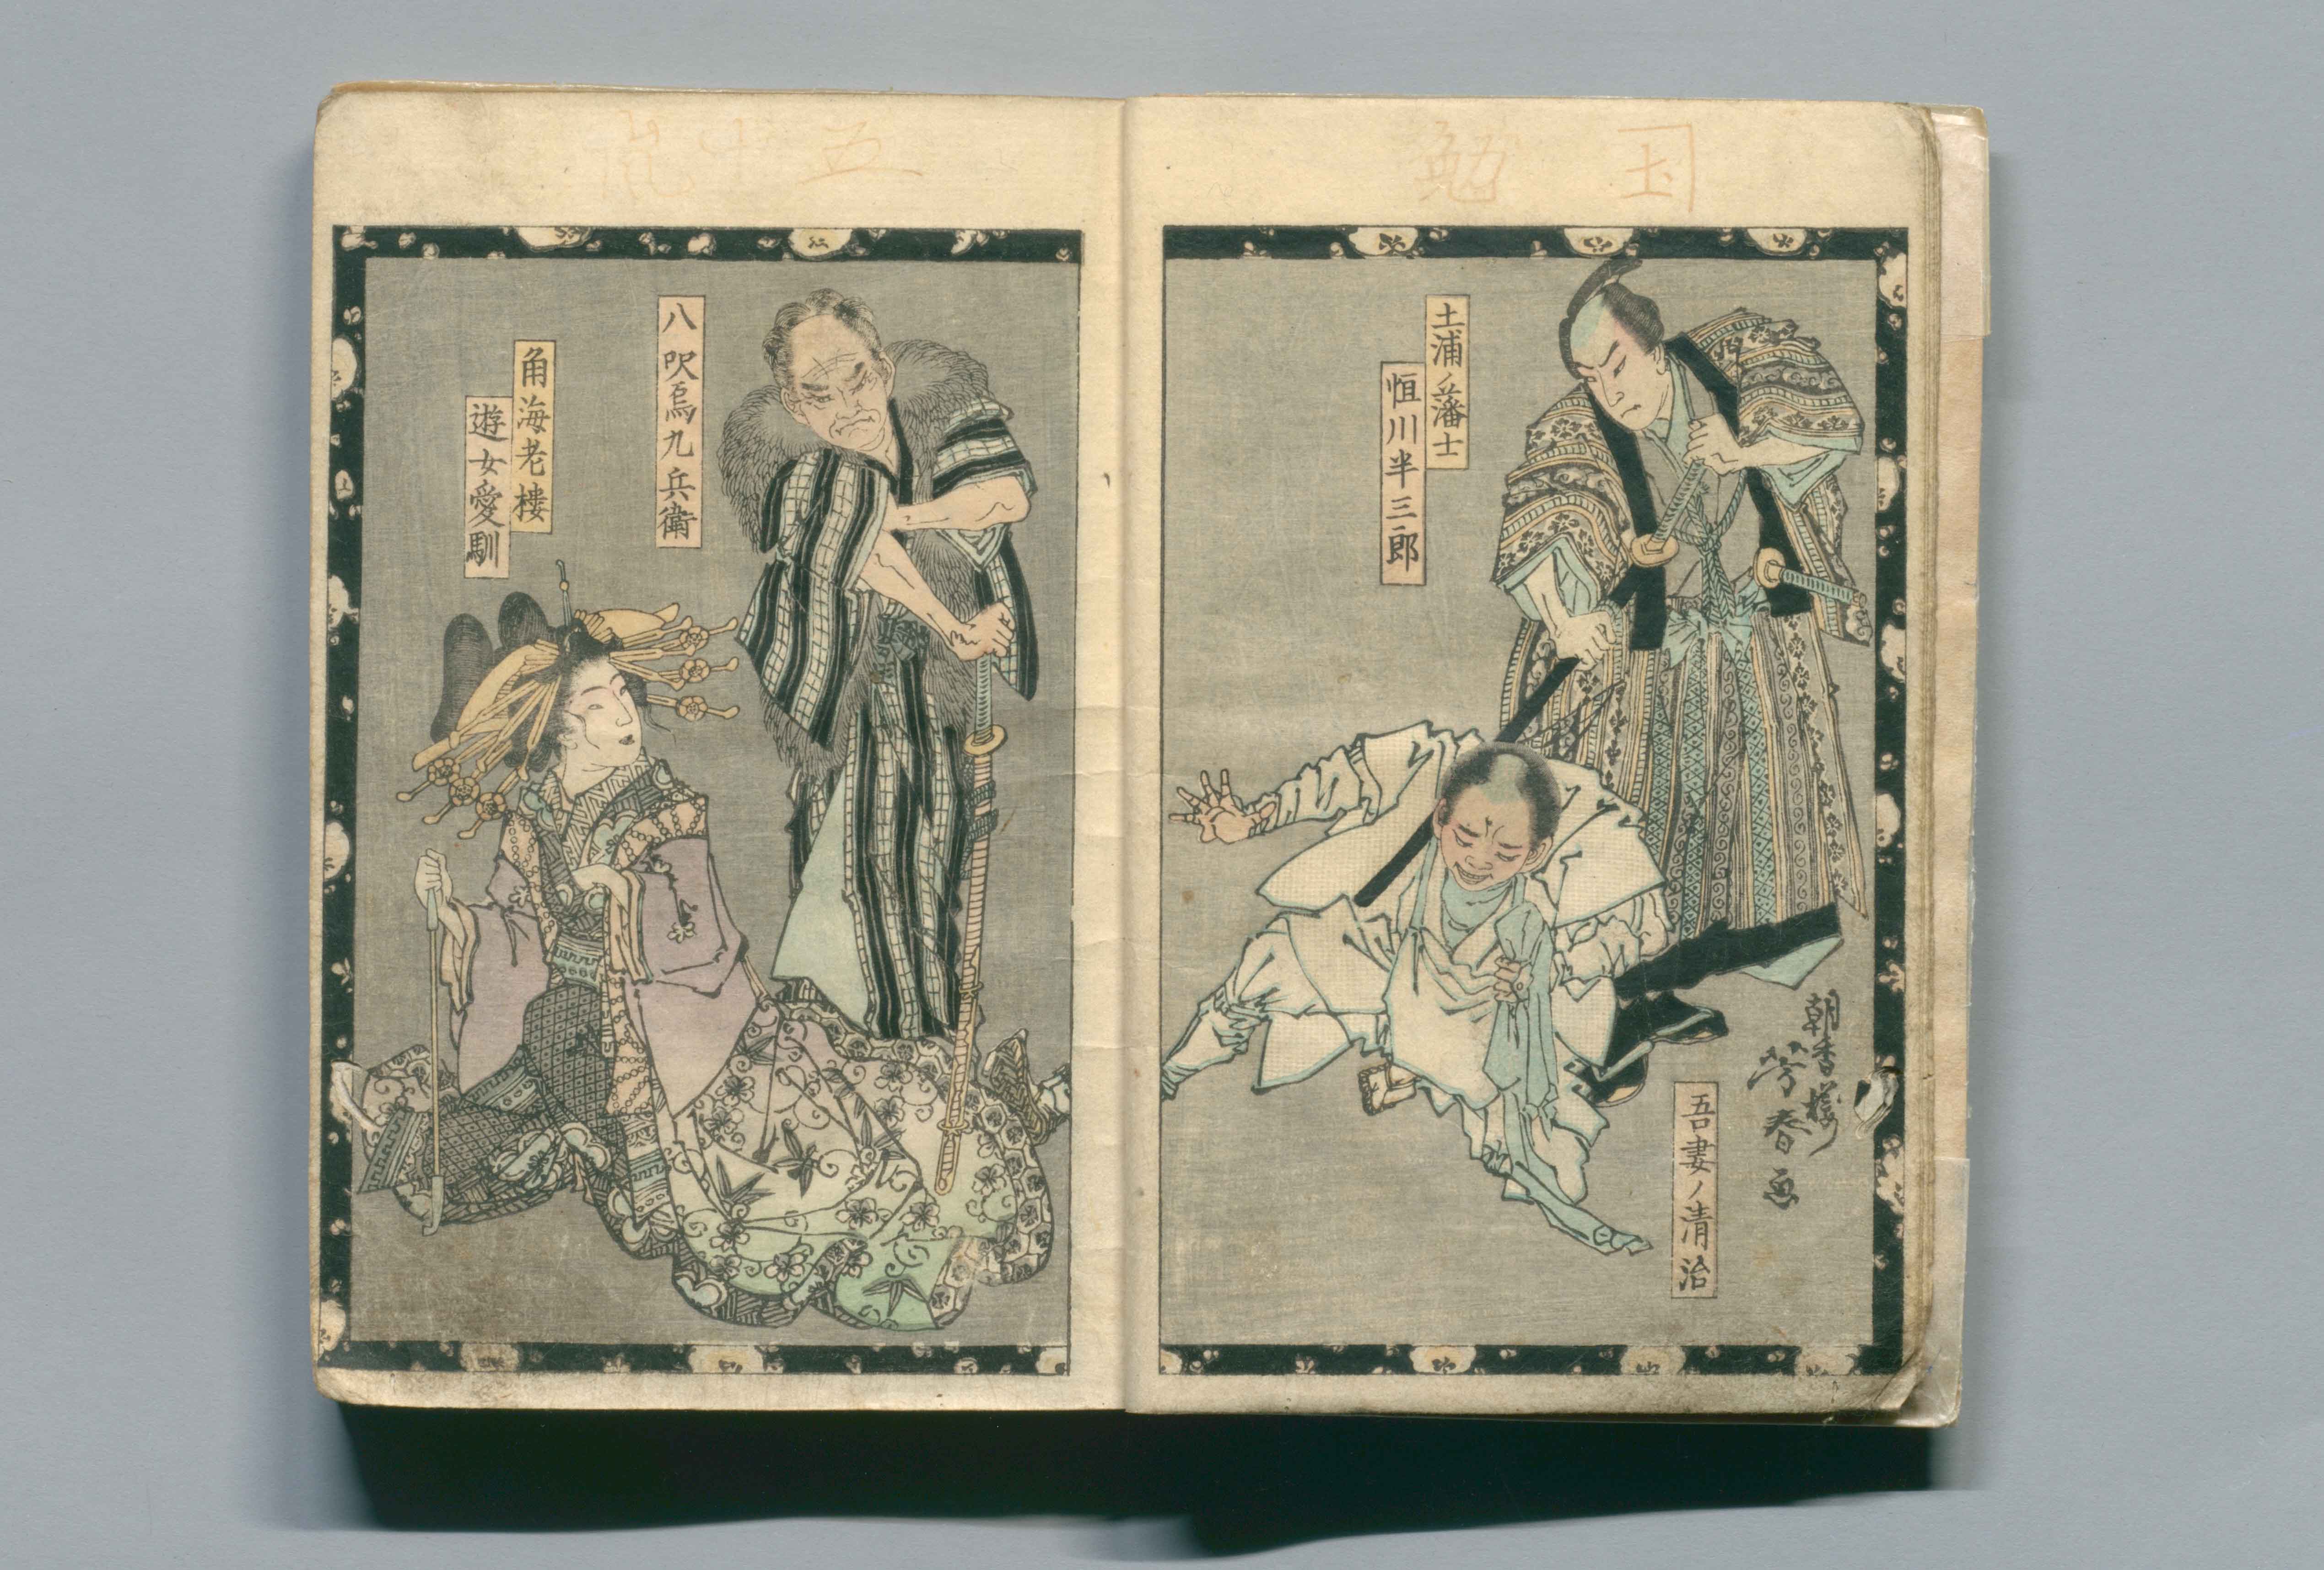 国 勉
土浦ノ藩士
恒川半三郎
朝香楼
芳春画
吾妻ノ清治
五 十 嵐
八吹烏九兵衛
角海老楼
遊女愛馴